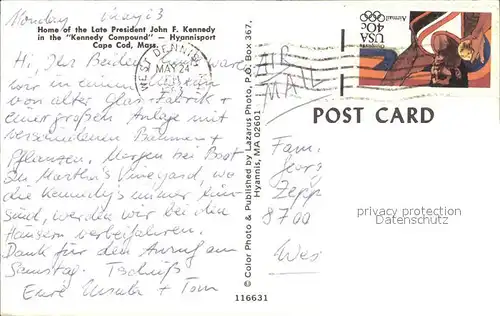 Monday
Home of the Late President John F. Kennedy
in the "Kennedy Compound" — Hyannisport
Cape Cod, Mass.
Hi Ihr Beiden,
wir in einem
von alter Glas-Fabrik +
einer großen Anlage mit
verschiedenen Bäumen +
Pflanzen. Morgen bei Boot
Martha's Vineyard, wo
die Kennedy's immer
sind, werden wir bei den
Häusern vorbeifahren.
Dank für den Anruf am
Samstag. Tschüß
Eure Ursula + Tom
WEST DENNIS
MAY 24
© Color Photo & Published by Lazarus Photo, P.O. Box 367,
Hyannis, MA 02601
116631
Olympics
USA
40c
Airmail
AIR
MAIL
POST CARD
Fam.
Georg
Zepp
8700
Wes
privacy protection
Datenschutz